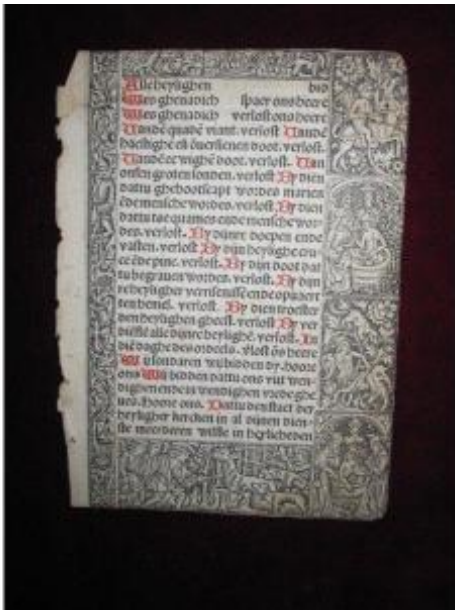 Alle heylighen bid
Wes ghenadich spaer ons heere
Wes ghenadich verlost ons heere
Uandē quadē viant. verlost Uandē
haestighē eñ doot. verlost.
Uandē ewighē doot. verlost. Uan
onsen groten sonden. verlost By dien
dattu ghebootscapt wordes marien
ēde mensche wordes. verlost By dien
dattu toe quames ende mensche wor
des. verlost. By dijnre doepen ende
vasten. verlost By dijn heylighe cru
ce ēde pine. verlost. By dijn doot dat
tu begrauen wordes. verlost. By dijn
re heyligher verrisenissē ende opuaert
ten hemel. verlost. By dien trooster
den heylighen gheest. verlost By ver
dienste alle dijnre heylighē. verlost. In
die daghe des ordeels. vlost ōs heere
Wi sondaren wi bidden dy. hoore
ons Wi bidden dattu ons
dighen ende wendighen vrede ghe
ues. Hoore ons. Dattu den staet der
heyligher kercken in al dijnen dien
ste meerderen wilste in heylicheden